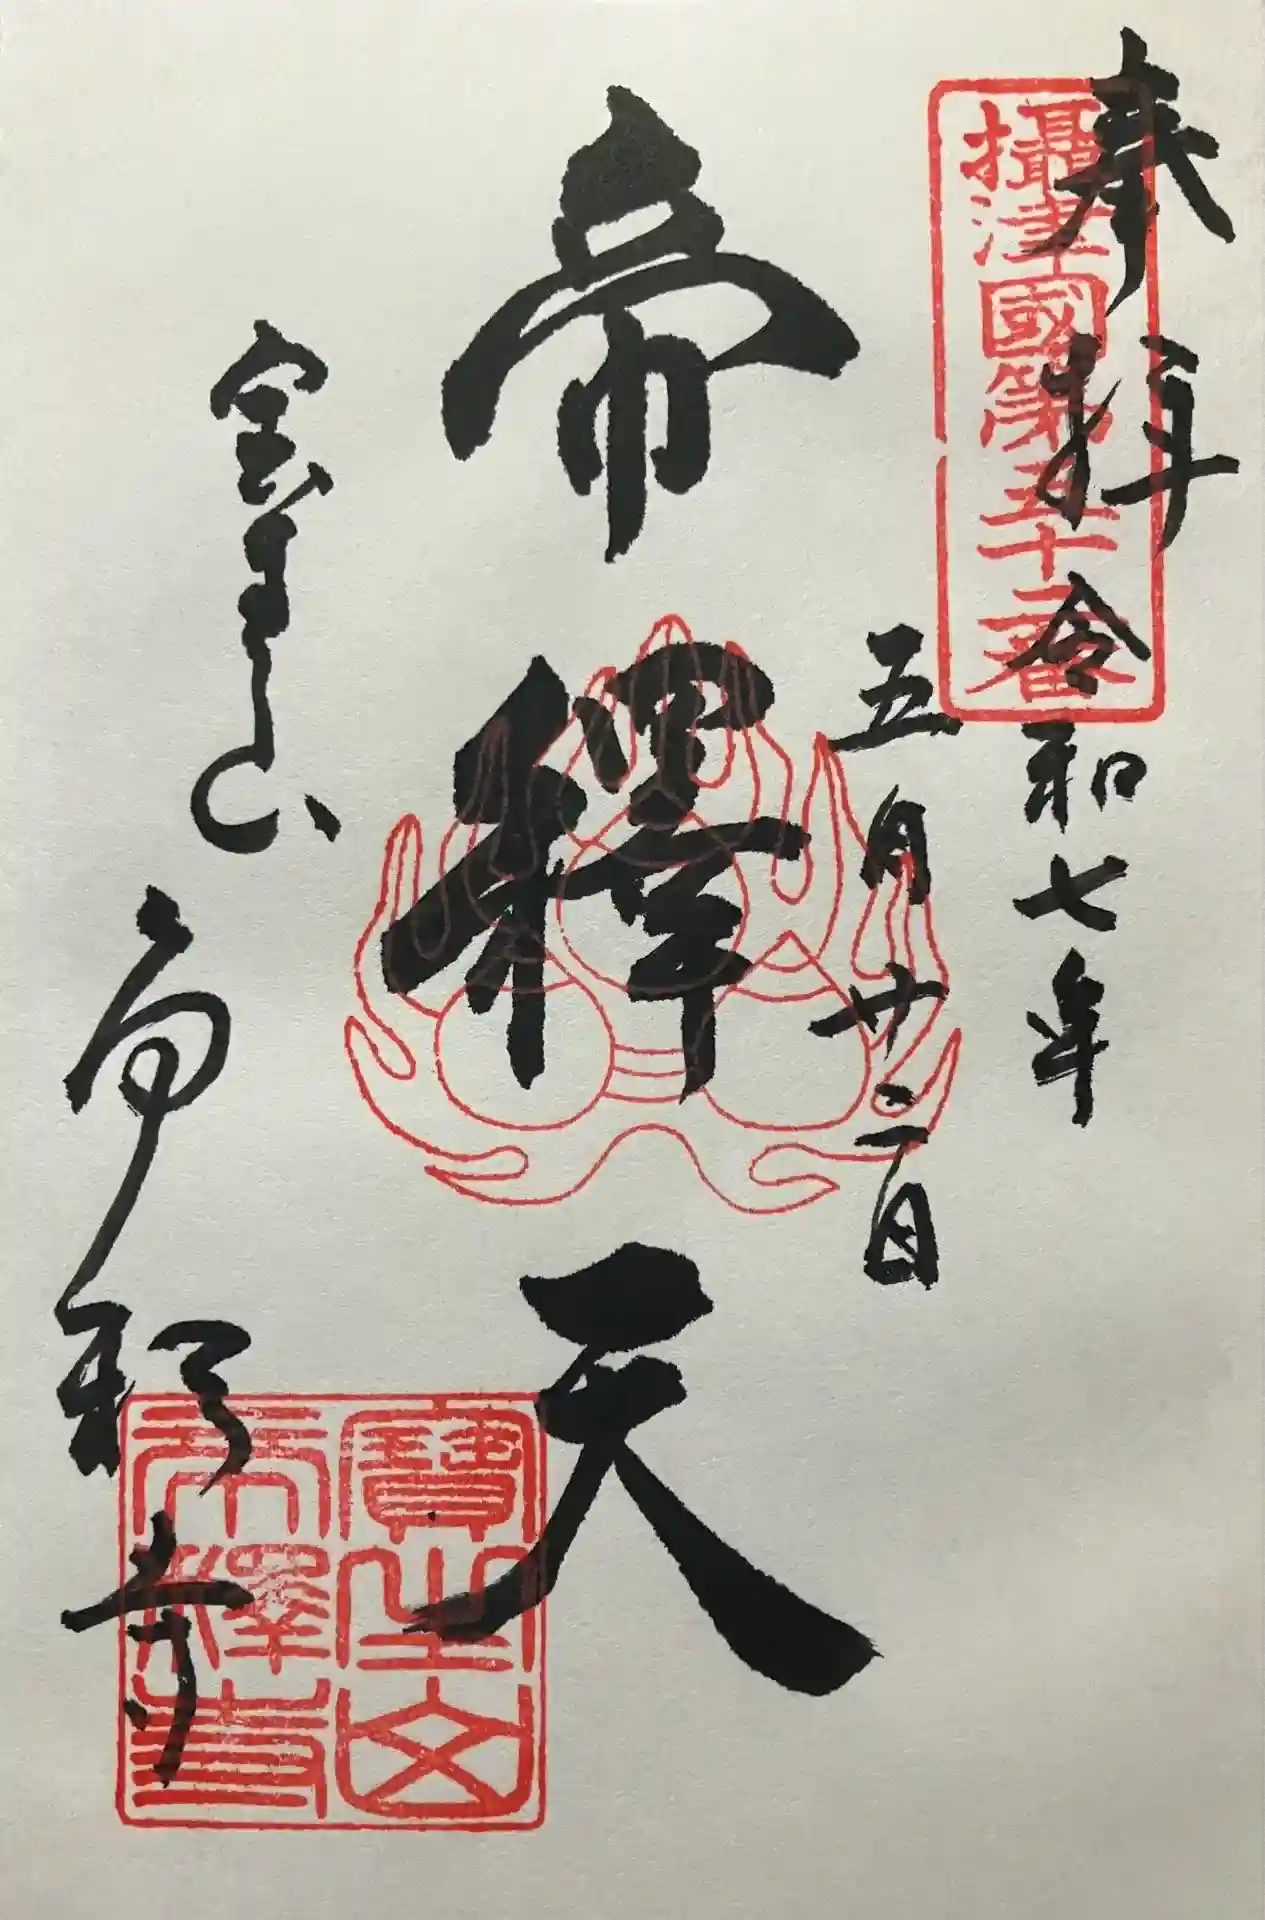 奉拝 令和七年
攝津國第五十二番
五月廿二日
帝釋天
宝生山
帝釈寺
寶生山
帝釋寺